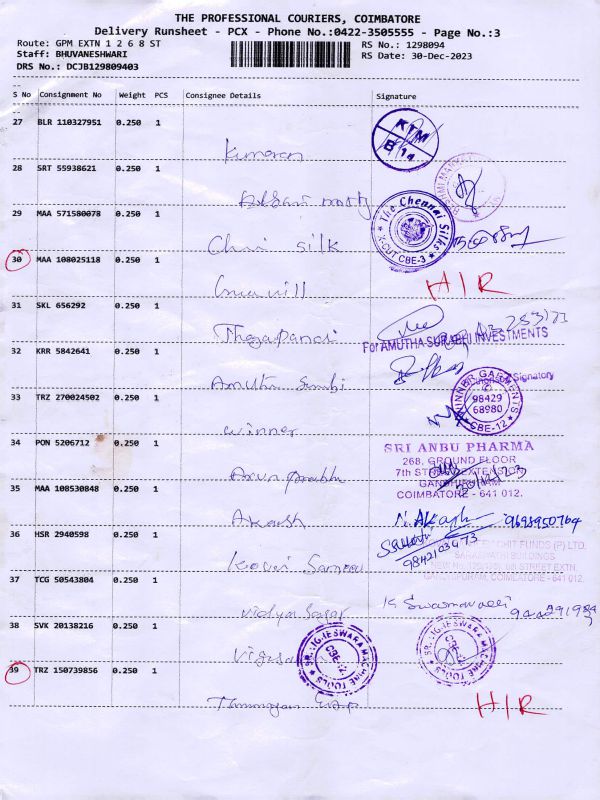 THE PROFESSIONAL COURIERS, COIMBATORE
Delivery Runsheet - PCX - Phone No.:0422-3505555 - Page No.:3
Route: GPM EXTN 1 2 6 8 ST
RS No.: 1298094
Staff: BHUVANESHWARI
RS Date: 30-Dec-2023
DRS No.: DCJB129809403
S No Consignment No Weight PCS Consignee Details Signature
27 BLR 110327951 0.250 1
KTM
B 14
Kumaran
28 SRT 55938621 0.250 1
29 MAA 571580078 0.250 1
The Chennai Silks
X-CUT CBE-3
Chni silk
30 MAA 108025118 0.250 1
H/R
31 SKL 656292 0.250 1
For AMUTHA SURABHI INVESTMENTS
32 KRR 5842641 0.250 1
Signatory
33 TRZ 270024502 0.250 1
WINNER GARMENTS
98429
68980
CBE-12
winner
34 PON 5206712 0.250 1
SRI ANBU PHARMA
268, GROUND FLOOR
7th STREET EXTENSION
GANDHIPURAM
COIMBATORE - 641 012.
Arun prabhu
35 MAA 108530848 0.250 1
N. Akash 9698950764
Akash
36 HSR 2940598 0.250 1
9842103473
CHIT FUNDS (P) LTD.
BUILDINGS
STREET EXTN.
GANDHIPURAM, COIMBATORE - 641 012.
37 TCG 50543804 0.250 1
K Swarnavalli
Vidya Sagar
38 SVK 20138216 0.250 1
SRI VIGNESWARA MACHINE TOOLS
CBE-12
SRI VIGNESWARA MACHINE TOOLS
CBE-12
39 TRZ 150739856 0.250 1
H/R